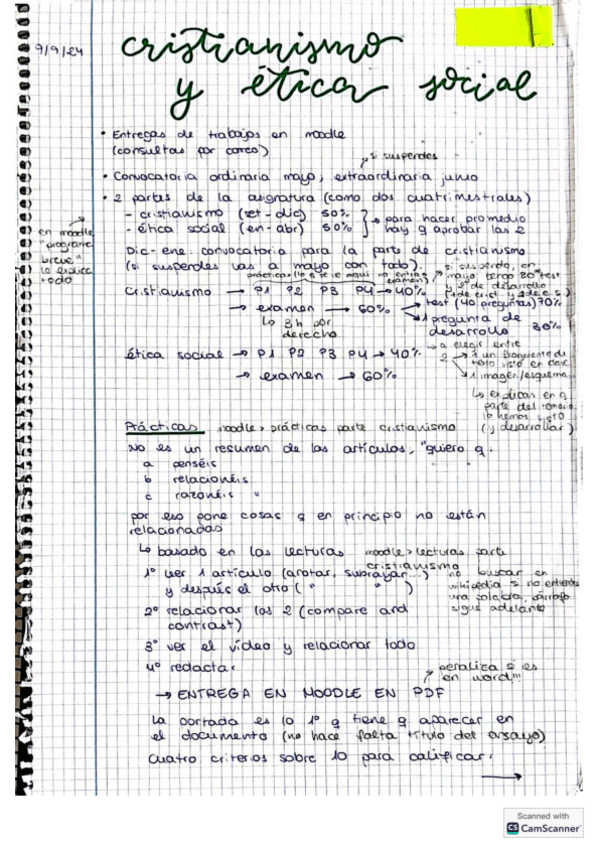 9/9/24
cristianismo
y ética social
• Entregas de trabajos en moodle
(consultas por correo)
→ si suspendes
• Convocatoria ordinaria mayo, extraordinaria junio
• 2 partes de la asignatura (como dos cuatrimestrales)
- cristianismo (set-dic) 50%
- ética social (en-abr) 50%
→ para hacer promedio
hay q aprobar las 2
en moodle
"programa
breve"
lo explica
todo
Dic-ene convocatoria para la parte de cristianismo
(si suspendes vas a mayo con todo)
prácticas (lo q se ve aquí no entra en examen)
si suspendo, en
mayo tengo 80 test
y 2 de desarrollo
(1 de crist y 1 de e.s.)
Cristianismo → P1 P2 P3 P4 → 40%
→ examen → 60%
→ test (40 preguntas) 70%
→ 1 pregunta de
desarrollo 30%
↳ 3h por
derecho
→ a elegir entre
2 → 1 un fragmento de
texto visto en clase
→ 1 imagen/esquema
↳ explicas en q
parte del temario
lo hemos visto
(y desarrollar)
ética social → P1 P2 P3 P4 → 40%
→ examen → 60%
Prácticas moodle > prácticas parte cristianismo
No es un resumen de los artículos, "quiero q:
a penséis
b relacionéis
c razonéis "
por eso pone cosas q en principio no están
relacionadas
↳ basado en las lecturas moodle > lecturas parte
cristianismo
1º leer 1 artículo (anotar, subrayar...)
y después el otro ( " " )
no buscar en
wikipedia si no entiendes
una palabra, párrafo
sigue adelante
2º relacionar los 2 (compare and
contrast)
3º ver el vídeo y relacionar todo
4º redactar
→ penaliza si es
en word!!!
→ ENTREGA EN MOODLE EN PDF
La portada es lo 1º q tiene q aparecer en
el documento (no hace falta título del ensayo)
Cuatro criterios sobre 10 para calificar:
→
Scanned with
CS CamScanner